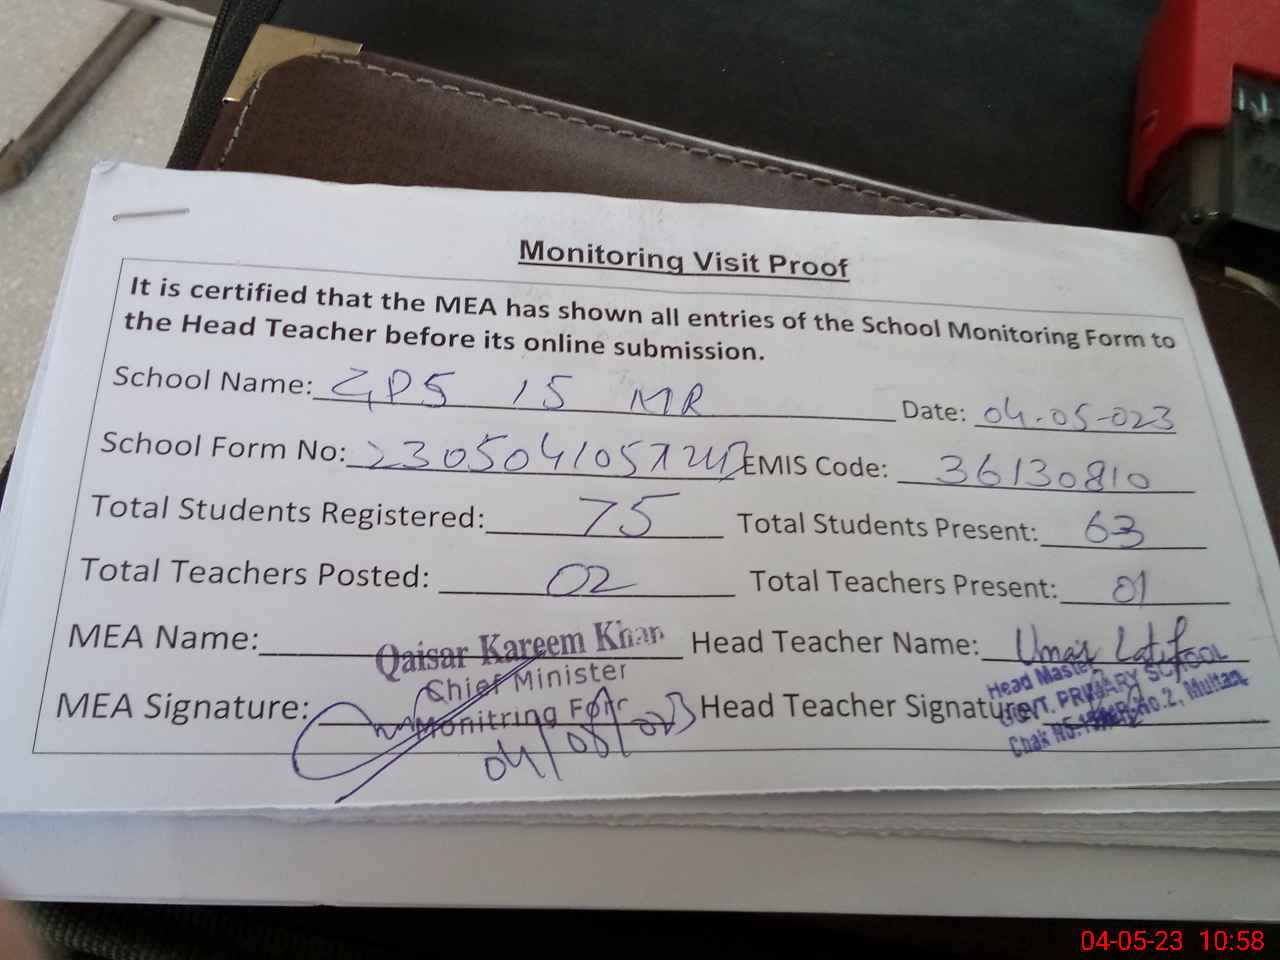 Monitoring Visit Proof
It is certified that the MEA has shown all entries of the School Monitoring Form to
the Head Teacher before its online submission.
School Name: GPS 15 MR Date: 04-05-023
School Form No: EMIS Code: 36130810
Total Students Registered: 75 Total Students Present: 63
Total Teachers Posted: 02 Total Teachers Present: 01
MEA Name: Qaisar Kareem Khan Head Teacher Name: Umair Latif
Chief Minister
Monitring Forc
MEA Signature: 04/05/023 Head Teacher Signature:
Head Master
GOVT. PRIMARY SCHOOL
Chak No. No.2, Multan
04-05-23 10:58